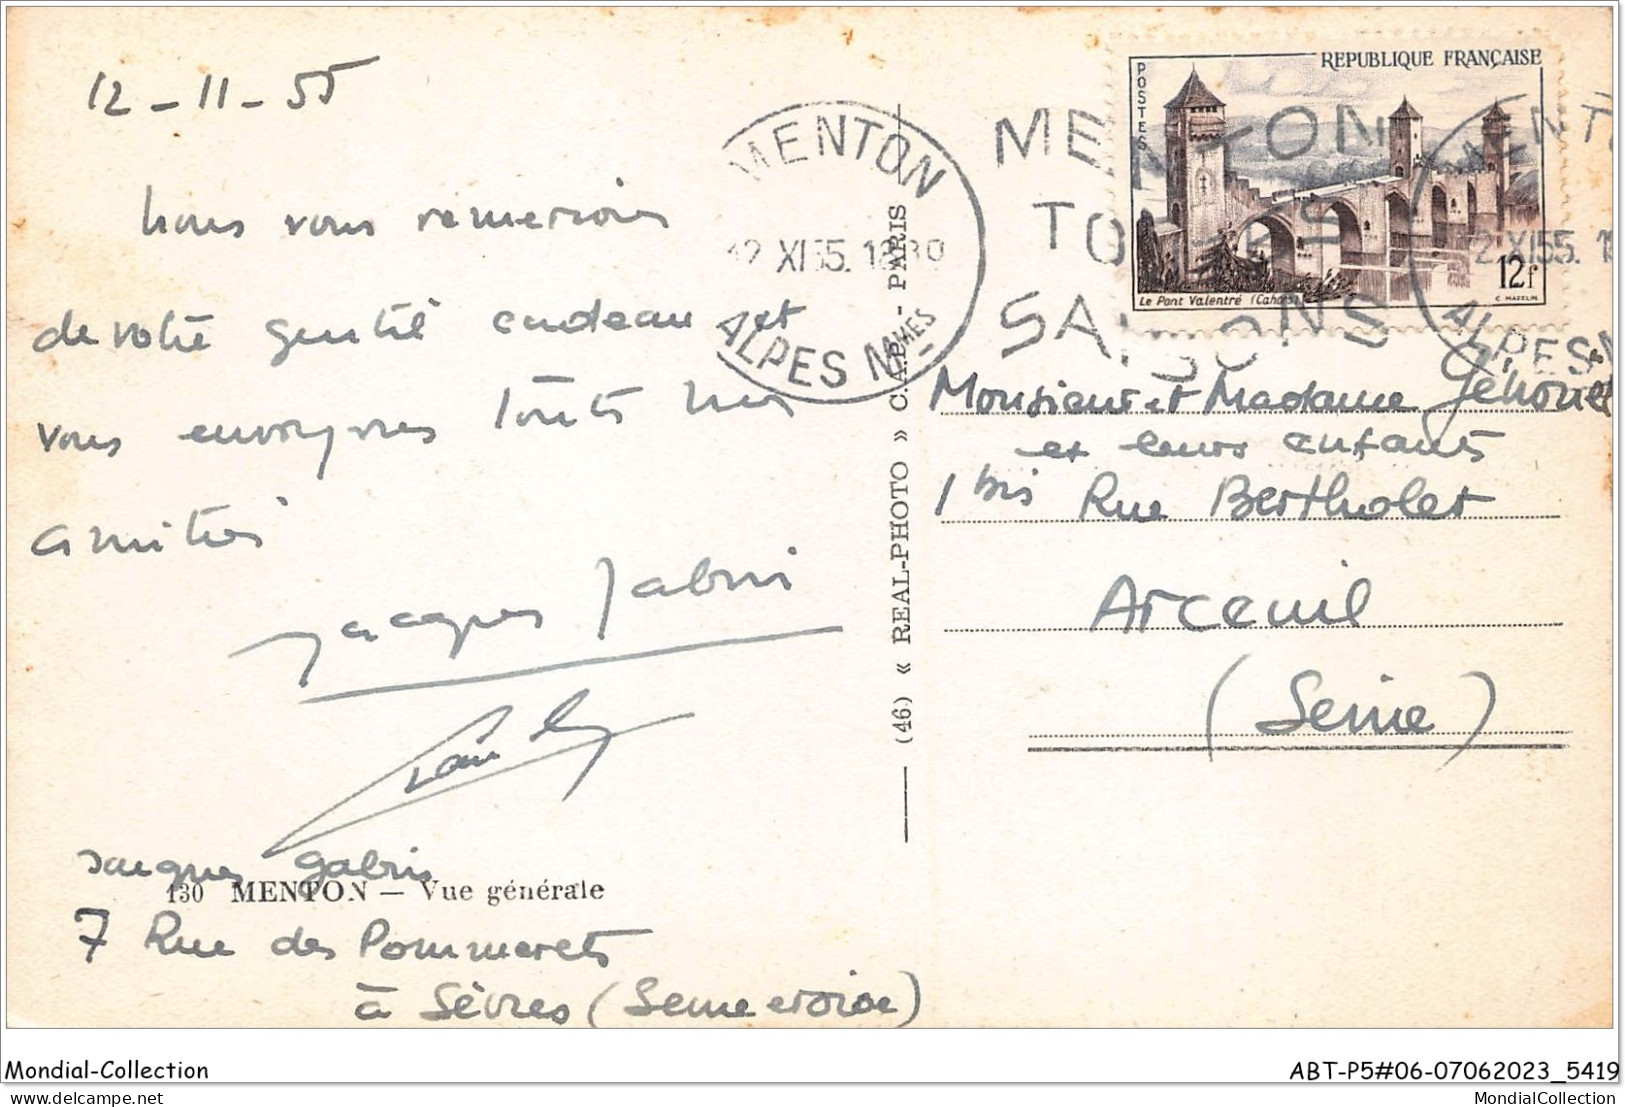 12-11-55
Nous vous remercions
de votre gentil cadeau et
vous envoyons toutes nos
amitiés
Jacques Gabris
Jacques Gabris
130 MENTON — Vue générale
7 Rue des Pommerets
à Sèvres (Seine et Oise)
MENTON
12 XI 55. 18 30
ALPES MMES
(46) « REAL-PHOTO » C.A.P. - PARIS
MENTON
TOUTES
SAISONS
REPUBLIQUE FRANÇAISE
POSTES
12f
Le Pont Valentré (Cahors)
C. MAZELIN
MENTO
12 XI 55. 18
ALPES M
Monsieur et Madame
et leurs enfants
1 bis Rue Berthollet
Arceuil
(Seine)
Mondial-Collection
ABT-P5#06-07062023_5419
Mondial-Collection
MondialCollection